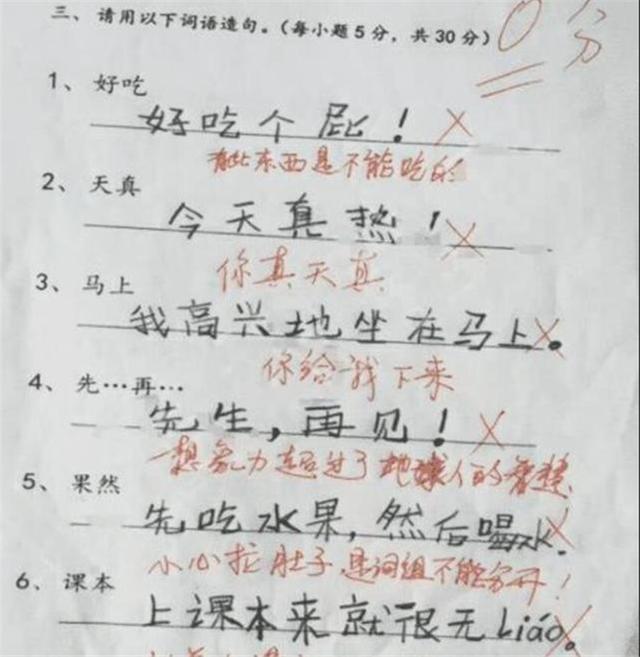 三、请用以下词语造句。(每小题5分，共30分)
0分
1、好吃
好吃个屁！
有些东西是不能吃的
2、天真
今天真热！
你真天真
3、马上
我高兴地坐在马上。
你给我下来
4、先…再…
先生，再见！
想象力超过了地球人的智慧
5、果然
先吃水果，然后喝水.
小心拉肚子,是词组不能分开！
6、课本
上课本来就很无Liáo。